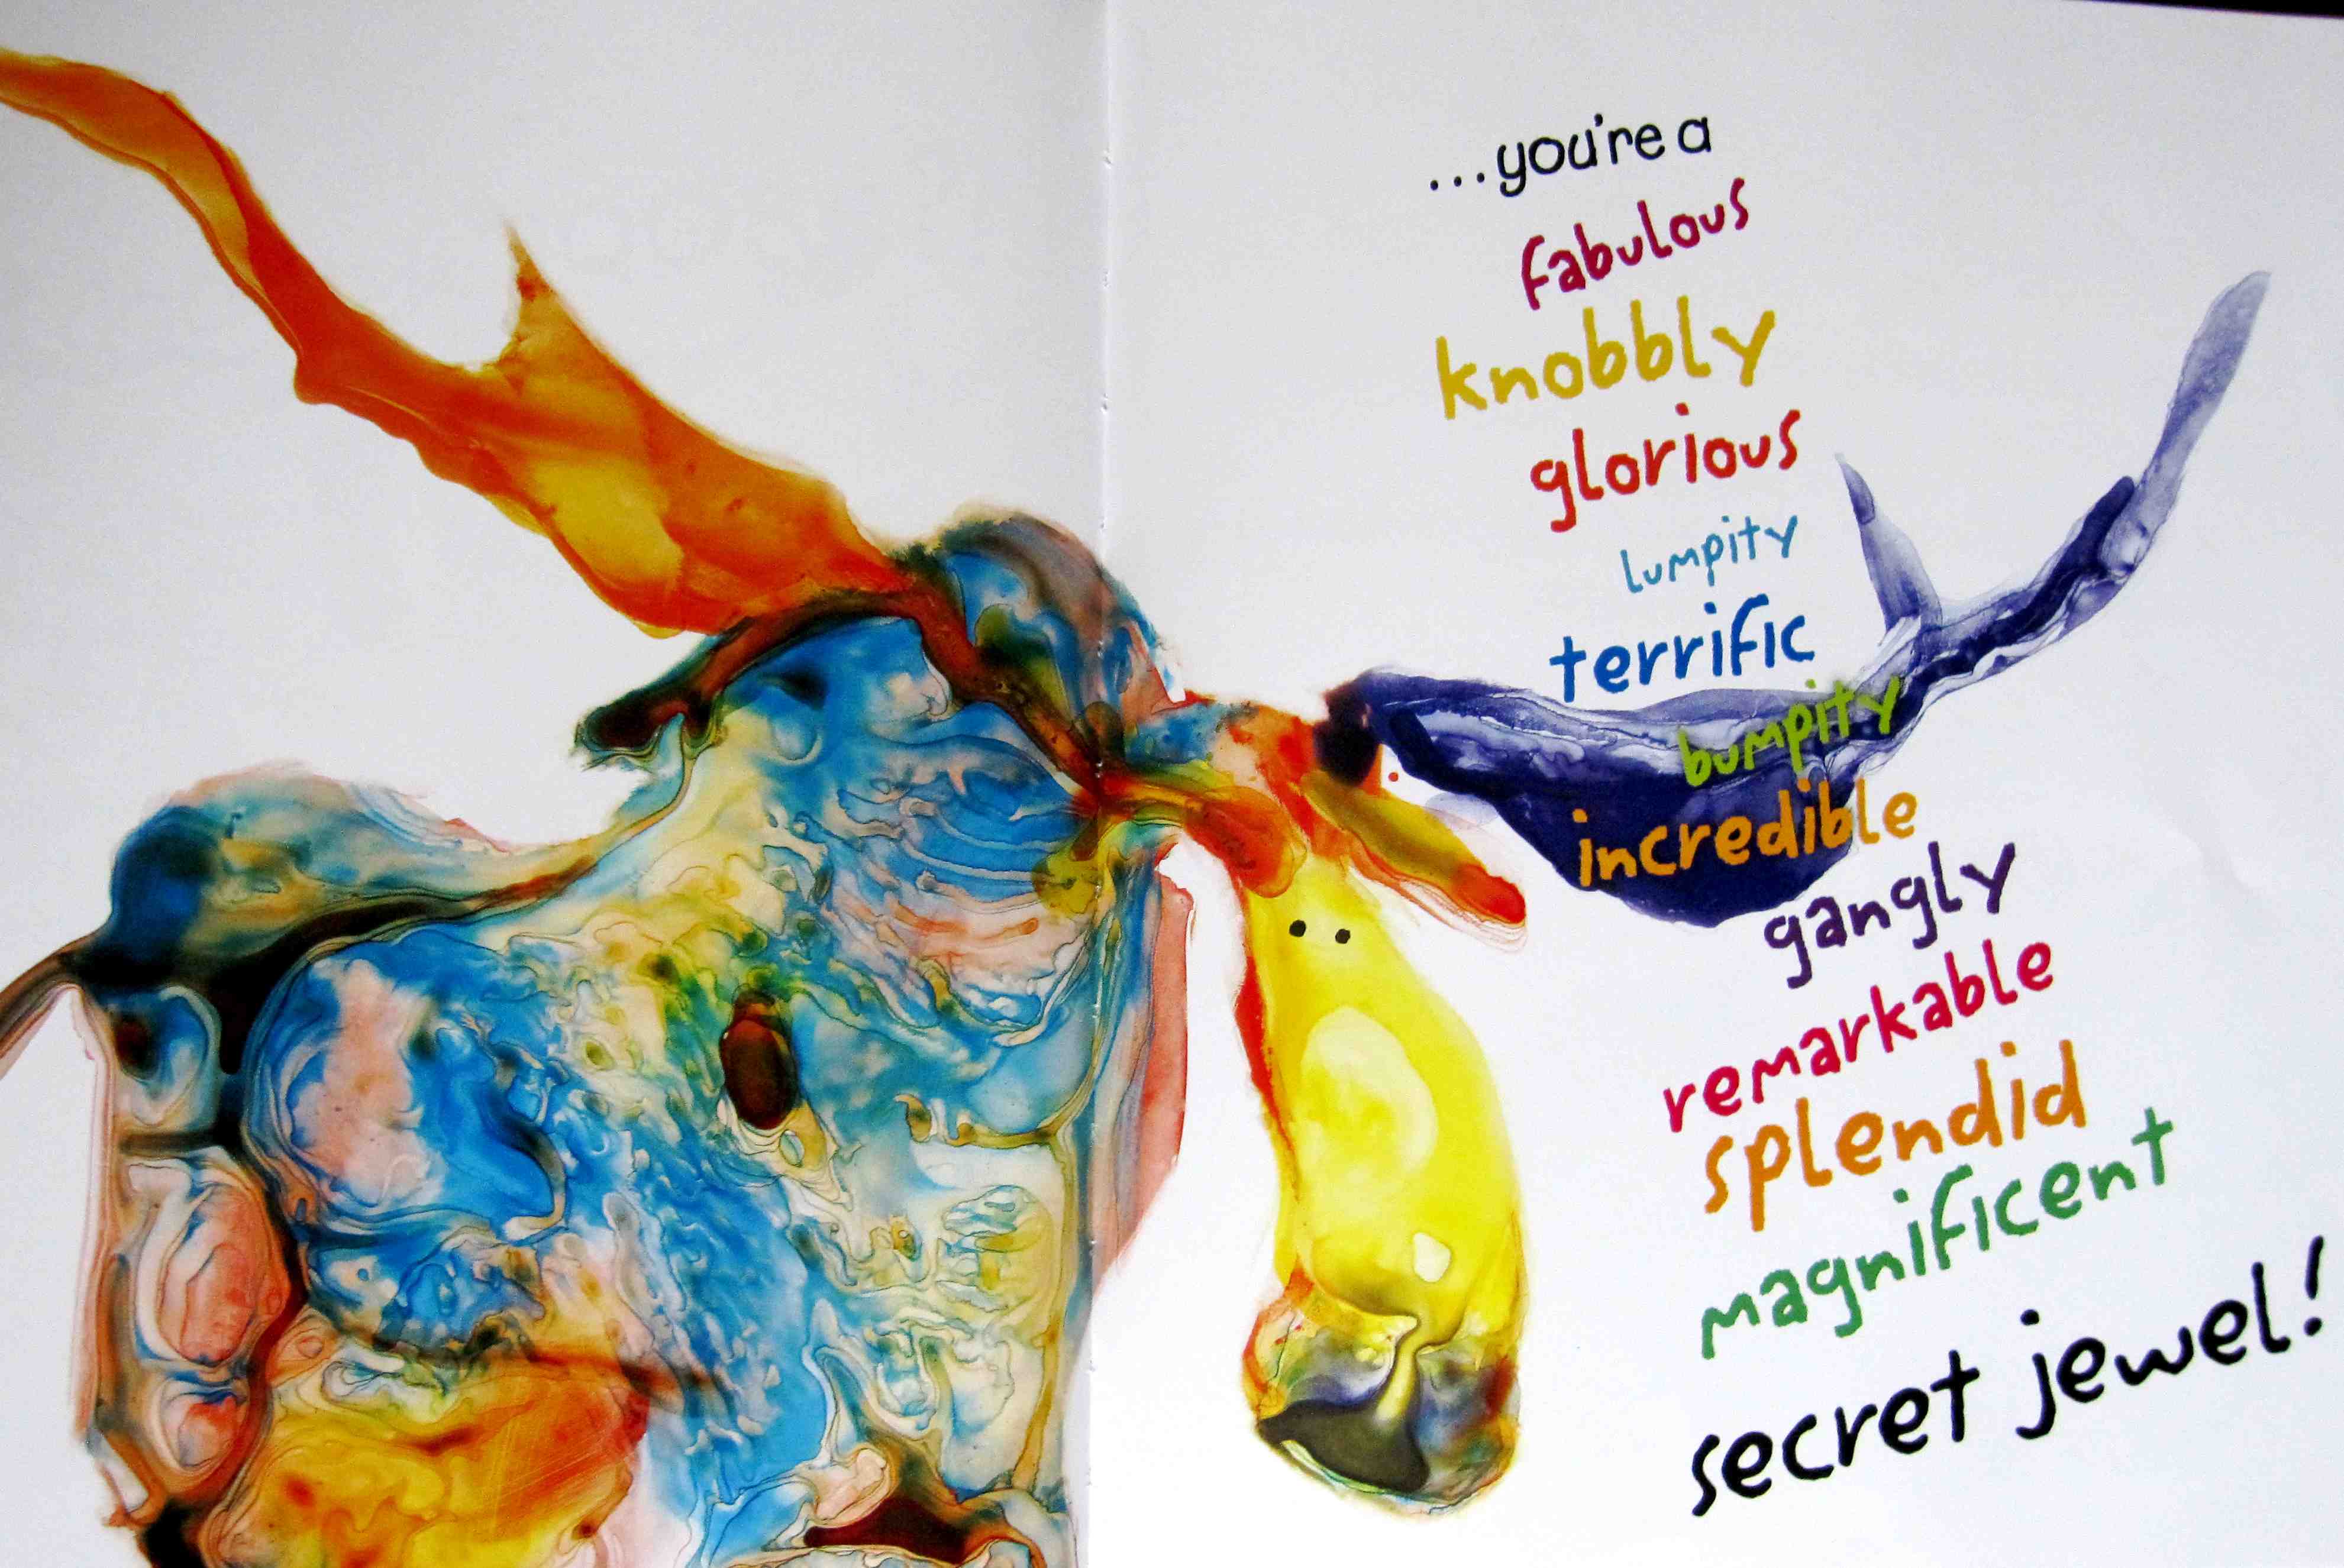 ...you're a
fabulous
knobbly
glorious
lumpity
terrific
bumpity
incredible
gangly
remarkable
splendid
magnificent
secret jewel!